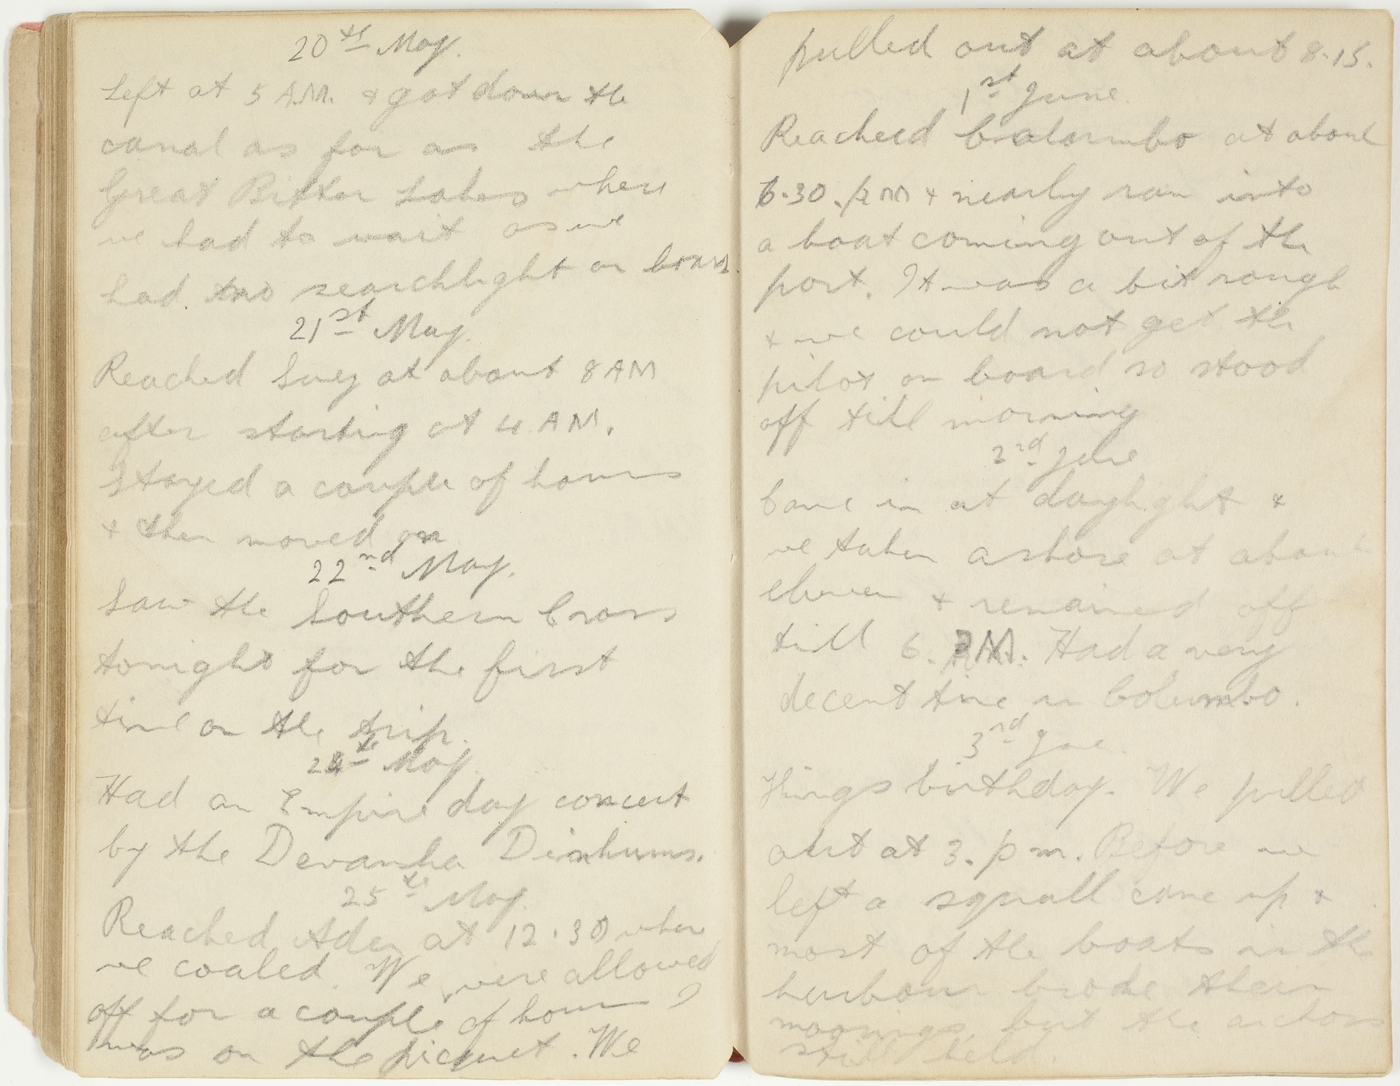 20th May.
Left at 5 A.M. & got down the
canal as far as the
Great Bitter Lakes where
we had to wait as we
had no searchlight on board.
21st May.
Reached Suez at about 8 AM
after starting at 4 A.M.
Stayed a couple of hours
& then moved on
22nd May.
Saw the Southern Cross
tonight for the first
time on the trip.
24th May.
Had an Empire day concert
by the Devanha Dinkums.
25th May.
Reached Aden at 12.30 where
we coaled. We were allowed
off for a couple of hours I
was on the picquet. We
pulled out at about 8.15.
1st June.
Reached Colombo at about
6.30. pm & nearly ran into
a boat coming out of the
port. It was a bit rough
& we could not get the
pilot on board so stood
off till morning
2nd June
Came in at daylight &
we taken ashore at about
eleven & remained off
till 6. P.M. Had a very
decent time in Columbo.
3rd June.
Kings birthday. We pulled
out at 3. p m. Before we
left a squall came up &
most of the boats in the
harbour broke their
moorings, but the anchors
still held.